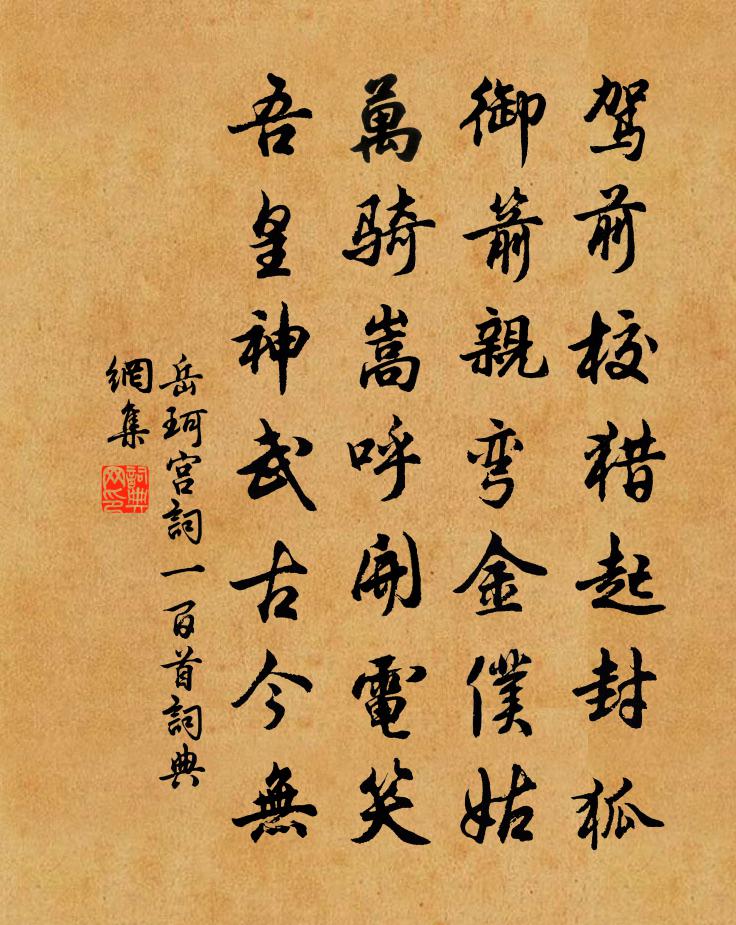 駕前校猎起封狐
御箭親弯金僕姑
萬騎嵩呼開電笑
吾皇神武古今無
岳珂宫詞一百首詞典
網集
詞典
网印